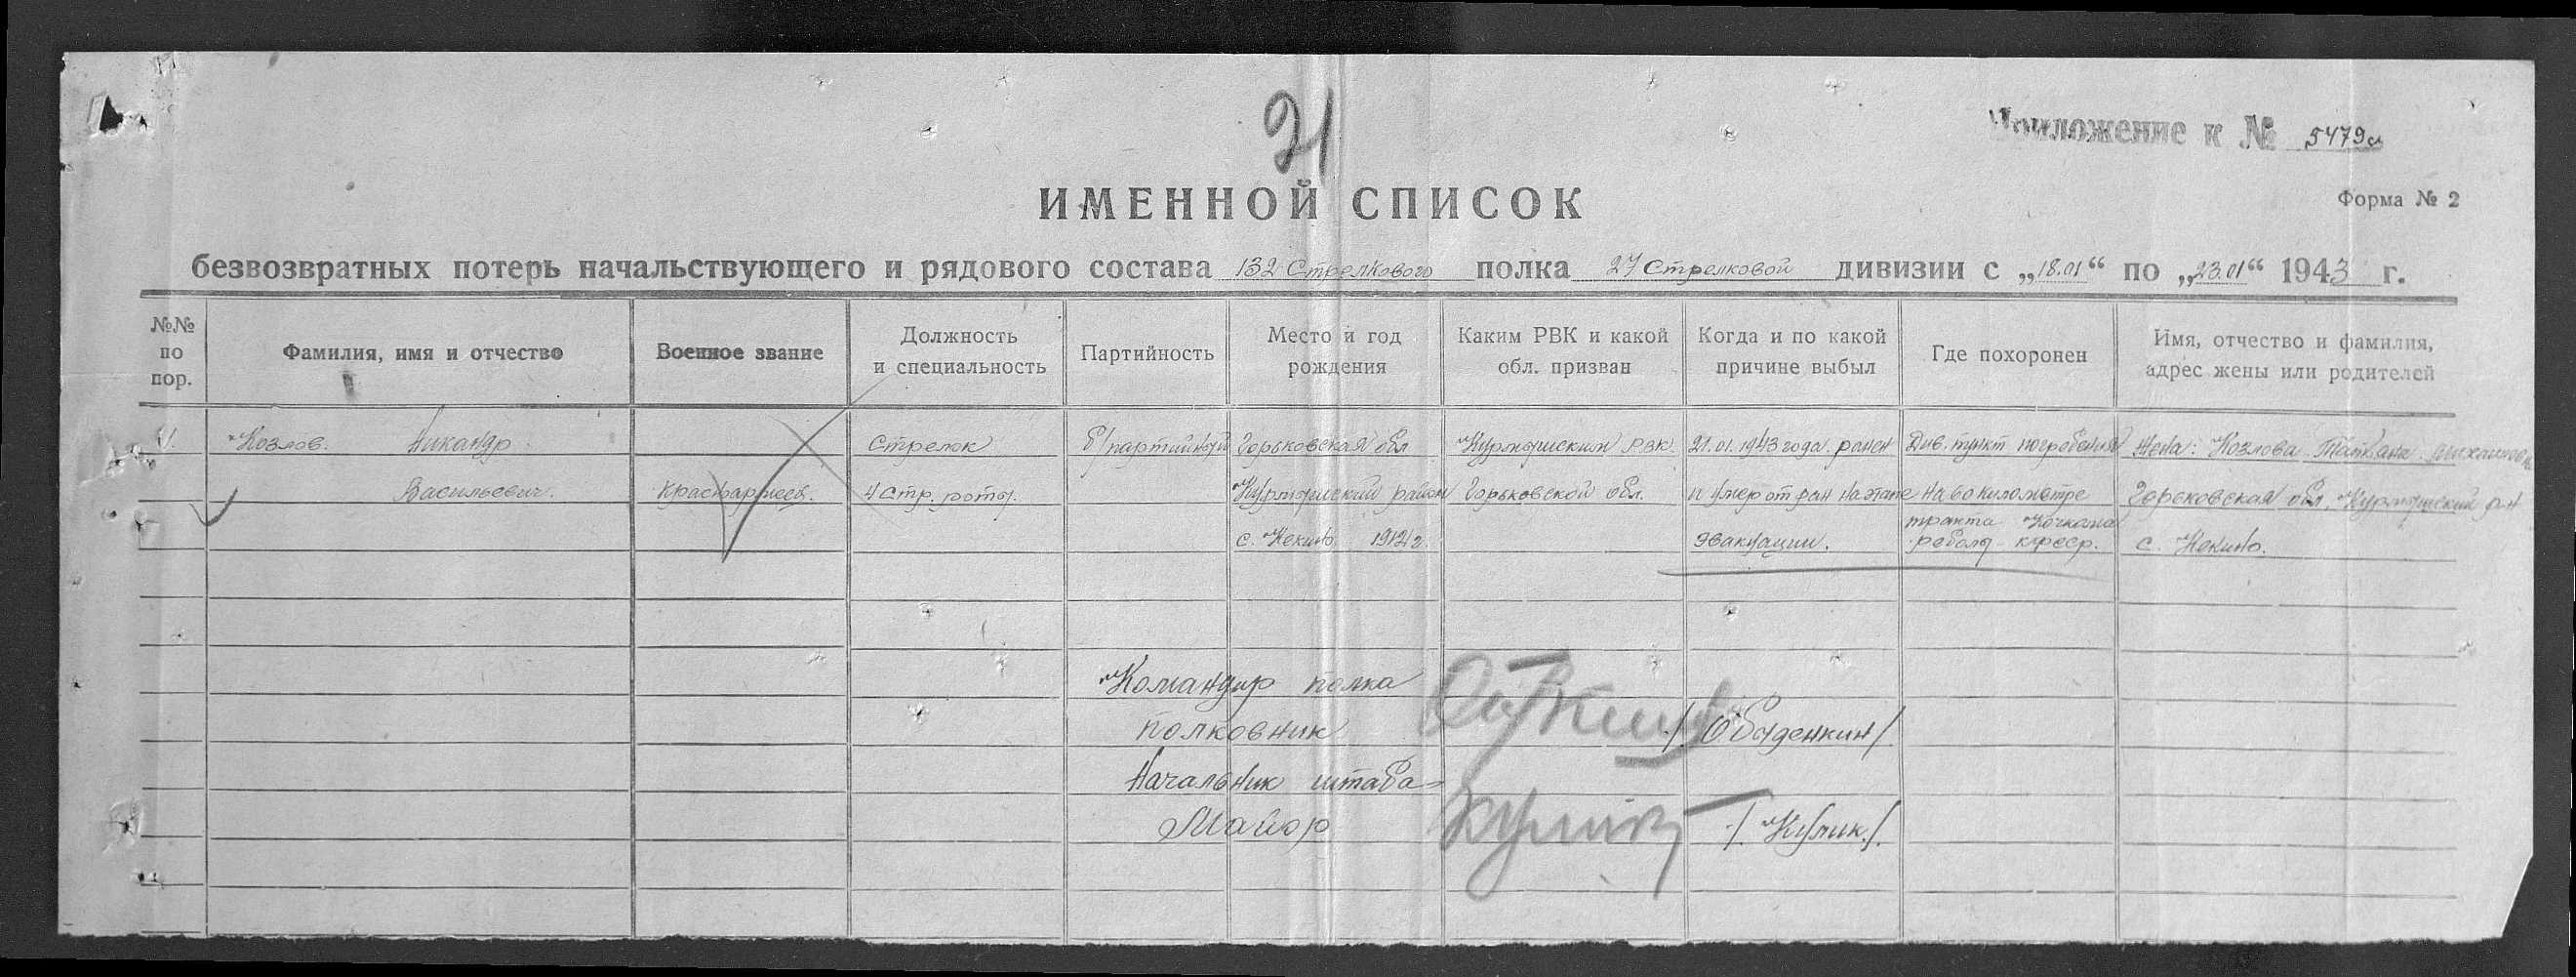 21
Приложение к № 5479с
ИМЕННОЙ СПИСОК
Форма № 2
безвозвратных потерь начальствующего и рядового состава 132 Стрелкового полка 27 Стрелковой дивизии с „18.01“ по „23.01“ 1943 г.
№№ по пор.
Фамилия, имя и отчество
Военное звание
Должность и специальность
Партийность
Место и год рождения
Каким РВК и какой обл. призван
Когда и по какой причине выбыл
Где похоронен
Имя, отчество и фамилия, адрес жены или родителей
1. Козлов Никандр Стрелок б/партийный Горьковская обл Курмышским РВК 21.01.1943 года ранен Див. пункт погребения Жена: Козлова Татьяна Михайловна
Васильевич. Красноармеец. 4 стр. роты. Курмышский район Горьковской обл. и умер от ран на этапе на 60 километре Горьковская обл, Курмышский р-н
с. Некино 1912 г. эвакуации. тракта Кочкома
реболы кфсср. с. Некино.
Командир полка
полковник /Обыденкин/
Начальник штаба
Майор /Кулик/.